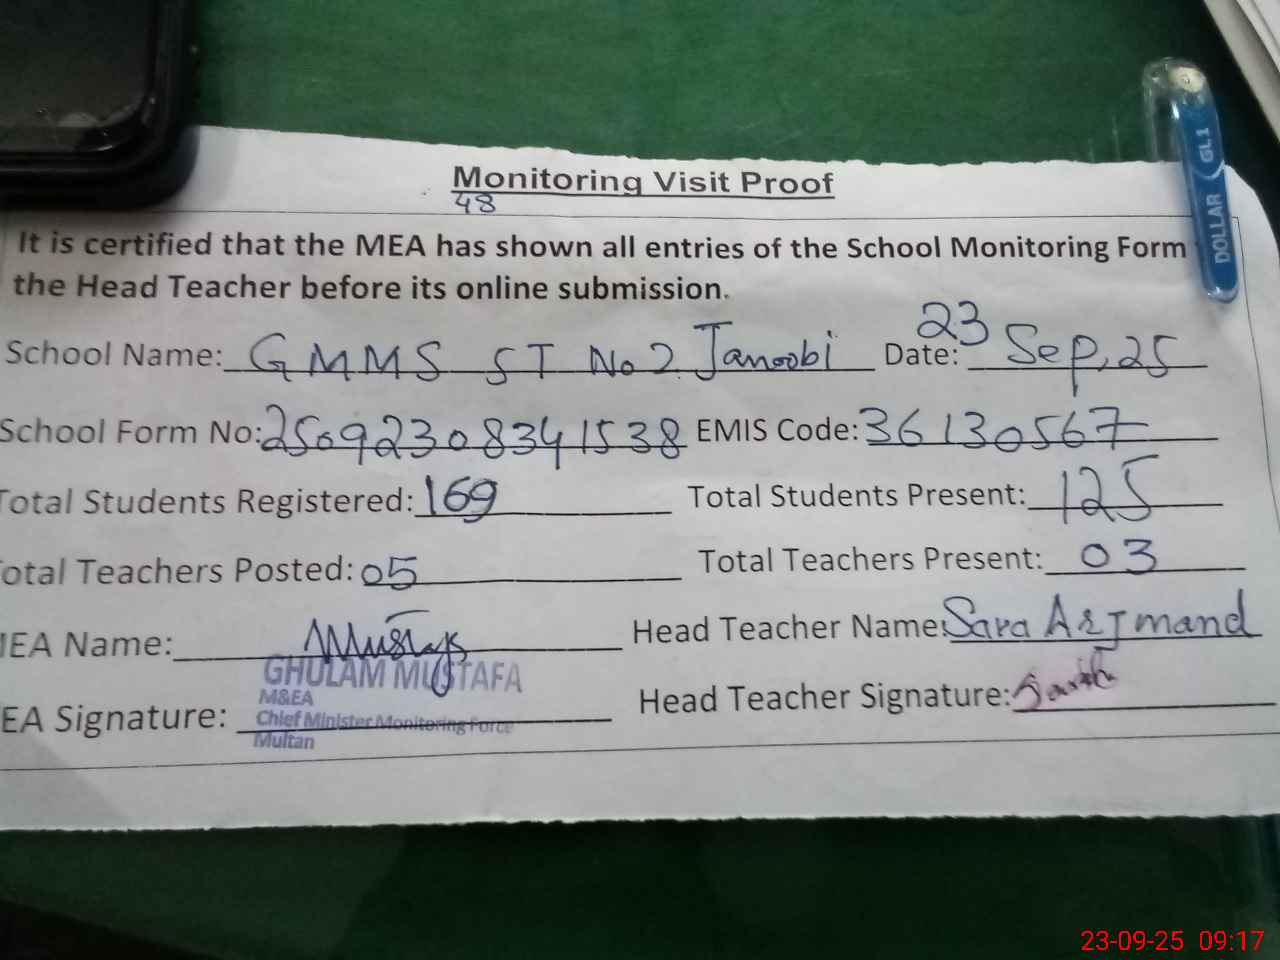 Monitoring Visit Proof
48
It is certified that the MEA has shown all entries of the School Monitoring Form
the Head Teacher before its online submission.
School Name: GMMS ST No 2 Janoobi Date: 23 Sep, 25
School Form No: 25092308341538 EMIS Code: 36130567
Total Students Registered: 169 Total Students Present: 125
otal Teachers Posted: 05 Total Teachers Present: 03
EA Name: Mustafa Head Teacher Name: Sara Arjmand
GHULAM MUSTAFA
M&EA
EA Signature: Head Teacher Signature:
Chief Minister Monitoring Force
Multan
DOLLAR GL1
23-09-25 09:17